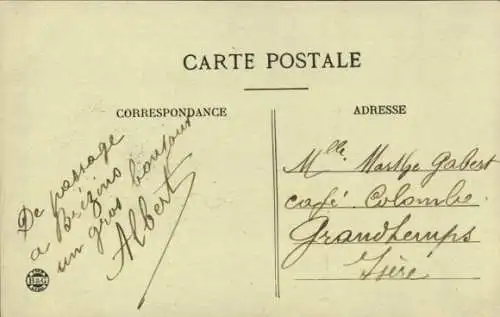 CARTE POSTALE
CORRESPONDANCE
De passage
a Brézins
un gros bonjour
Albert
ADRESSE
Mlle. Marthe Gabert
café Colombe.
Grandtemps
Isère